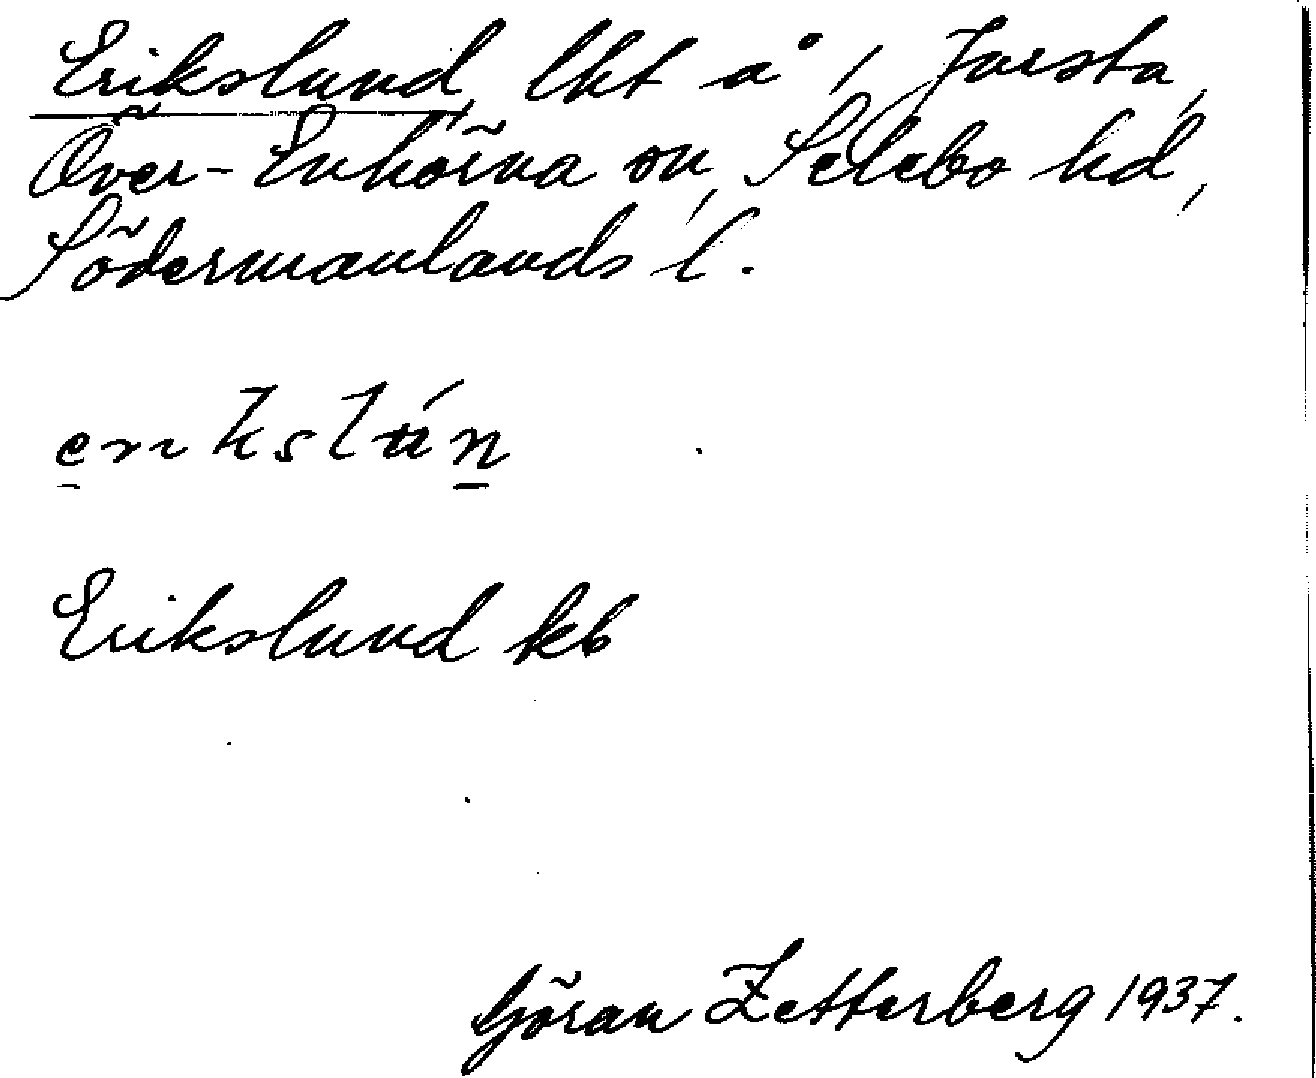 Erikslund, lht å 1 Jursta,
Över-Enhörna sn, Selebo hd,
Södermanlands l.
erikslún
Erikslund kb
Göran Zetterberg 1937.